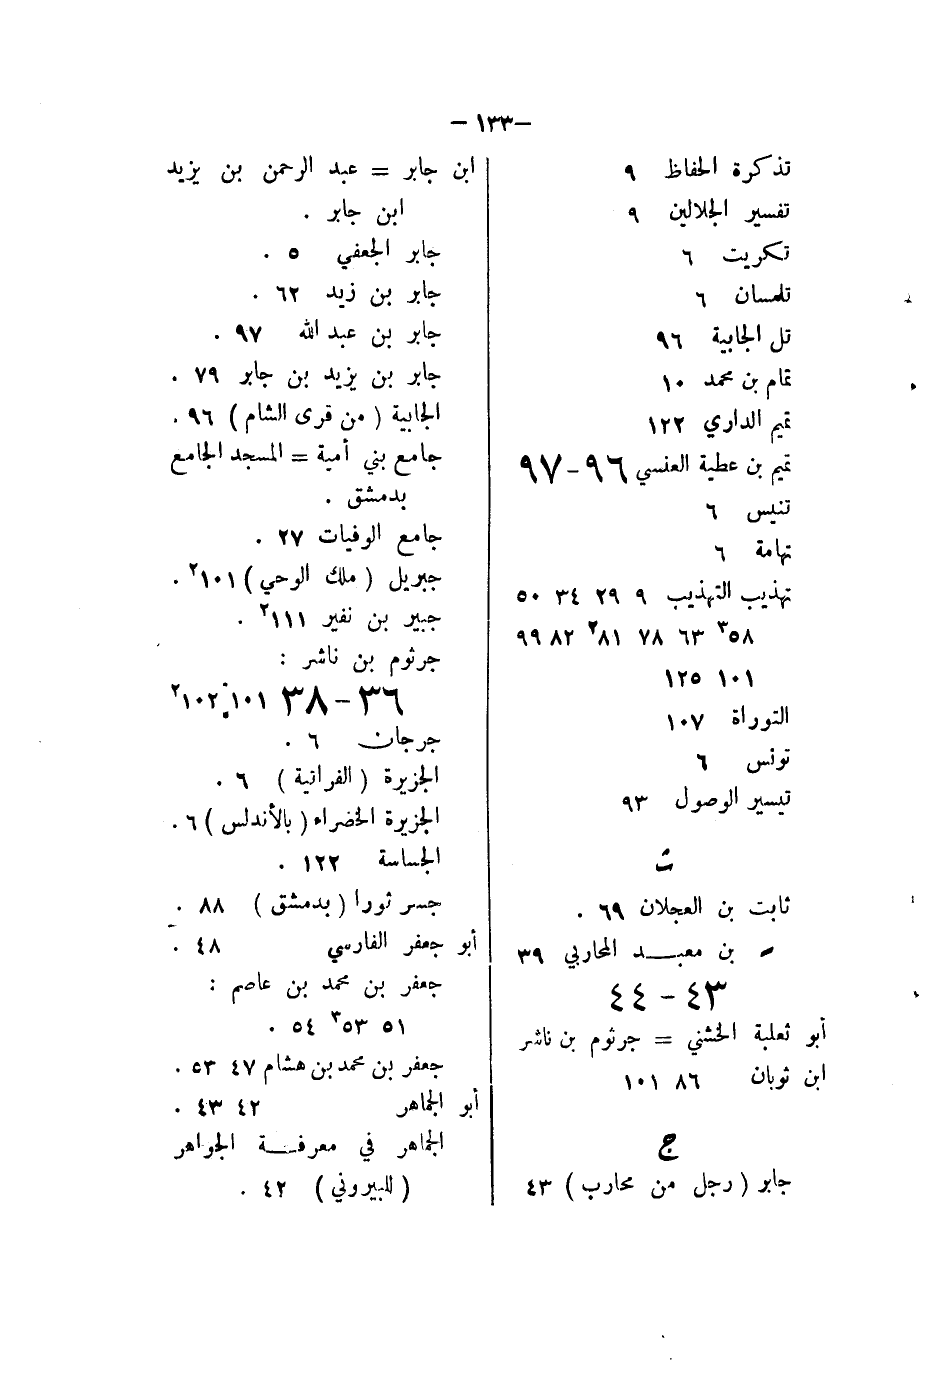 — ١٣٣ —
تذكرة الحفاظ ٩
تفسير الجلالين ٩
تكريت ٦
تلمسان ٦
تل الجابية ٩٦
تمام بن محمد ١٠
تميم الداري ١٢٢
تميم بن عطية العنسي ٩٦-٩٧
تنيس ٦
تهامة ٦
تهذيب التهذيب ٩ ٢٩ ٣٤ ٥٠
٥٨٣ ٦٣ ٧٨ ٨١٢ ٨٢ ٩٩
١٠١ ١٢٥
التوراة ١٠٧
تونس ٦
تيسير الوصول ٩٣
ث
ثابت بن العجلان ٦٩ .
بن معبد المحاربي ٣٩
٤٣ - ٤٤
أبو ثعلبة الخشني = جرثوم بن ناشر
ابن ثوبان ٨٦ ١٠١
ج
جابر ( رجل من محارب ) ٤٣
ابن جابر = عبد الرحمن بن يزيد
ابن جابر .
جابر الجعفي ٥ .
جابر بن زيد ٦٢ .
جابر بن عبد الله ٩٧ .
جابر بن يزيد بن جابر ٧٩ .
الجابية ( من قرى الشام ) ٩٦ .
جامع بني أمية = المسجد الجامع
بدمشق .
جامع الوفيات ٢٧ .
جبريل ( ملك الوحي ) ١٠١٢ .
جبير بن نفير ١١١٢ .
جرثوم بن ناشر :
٣٦-٣٨ ١٠١ ١٠٢٢ .
جرجان ٦ .
الجزيرة ( الفراتية ) ٦ .
الجزيرة الخضراء ( بالأندلس ) ٦ .
الجساسة ١٢٢ .
جسر ثورا ( بدمشق ) ٨٨ .
أبو جعفر الفارسي ٤٨ .
جعفر بن محمد بن عاصم :
٥١ ٥٣٣ ٥٤ .
جعفر بن محمد بن هشام ٤٧ ٥٣ .
أبو الجماهر ٤٢ ٤٣ .
الجماهر في معرفة الجواهر
( للبيروني ) ٤٢ .